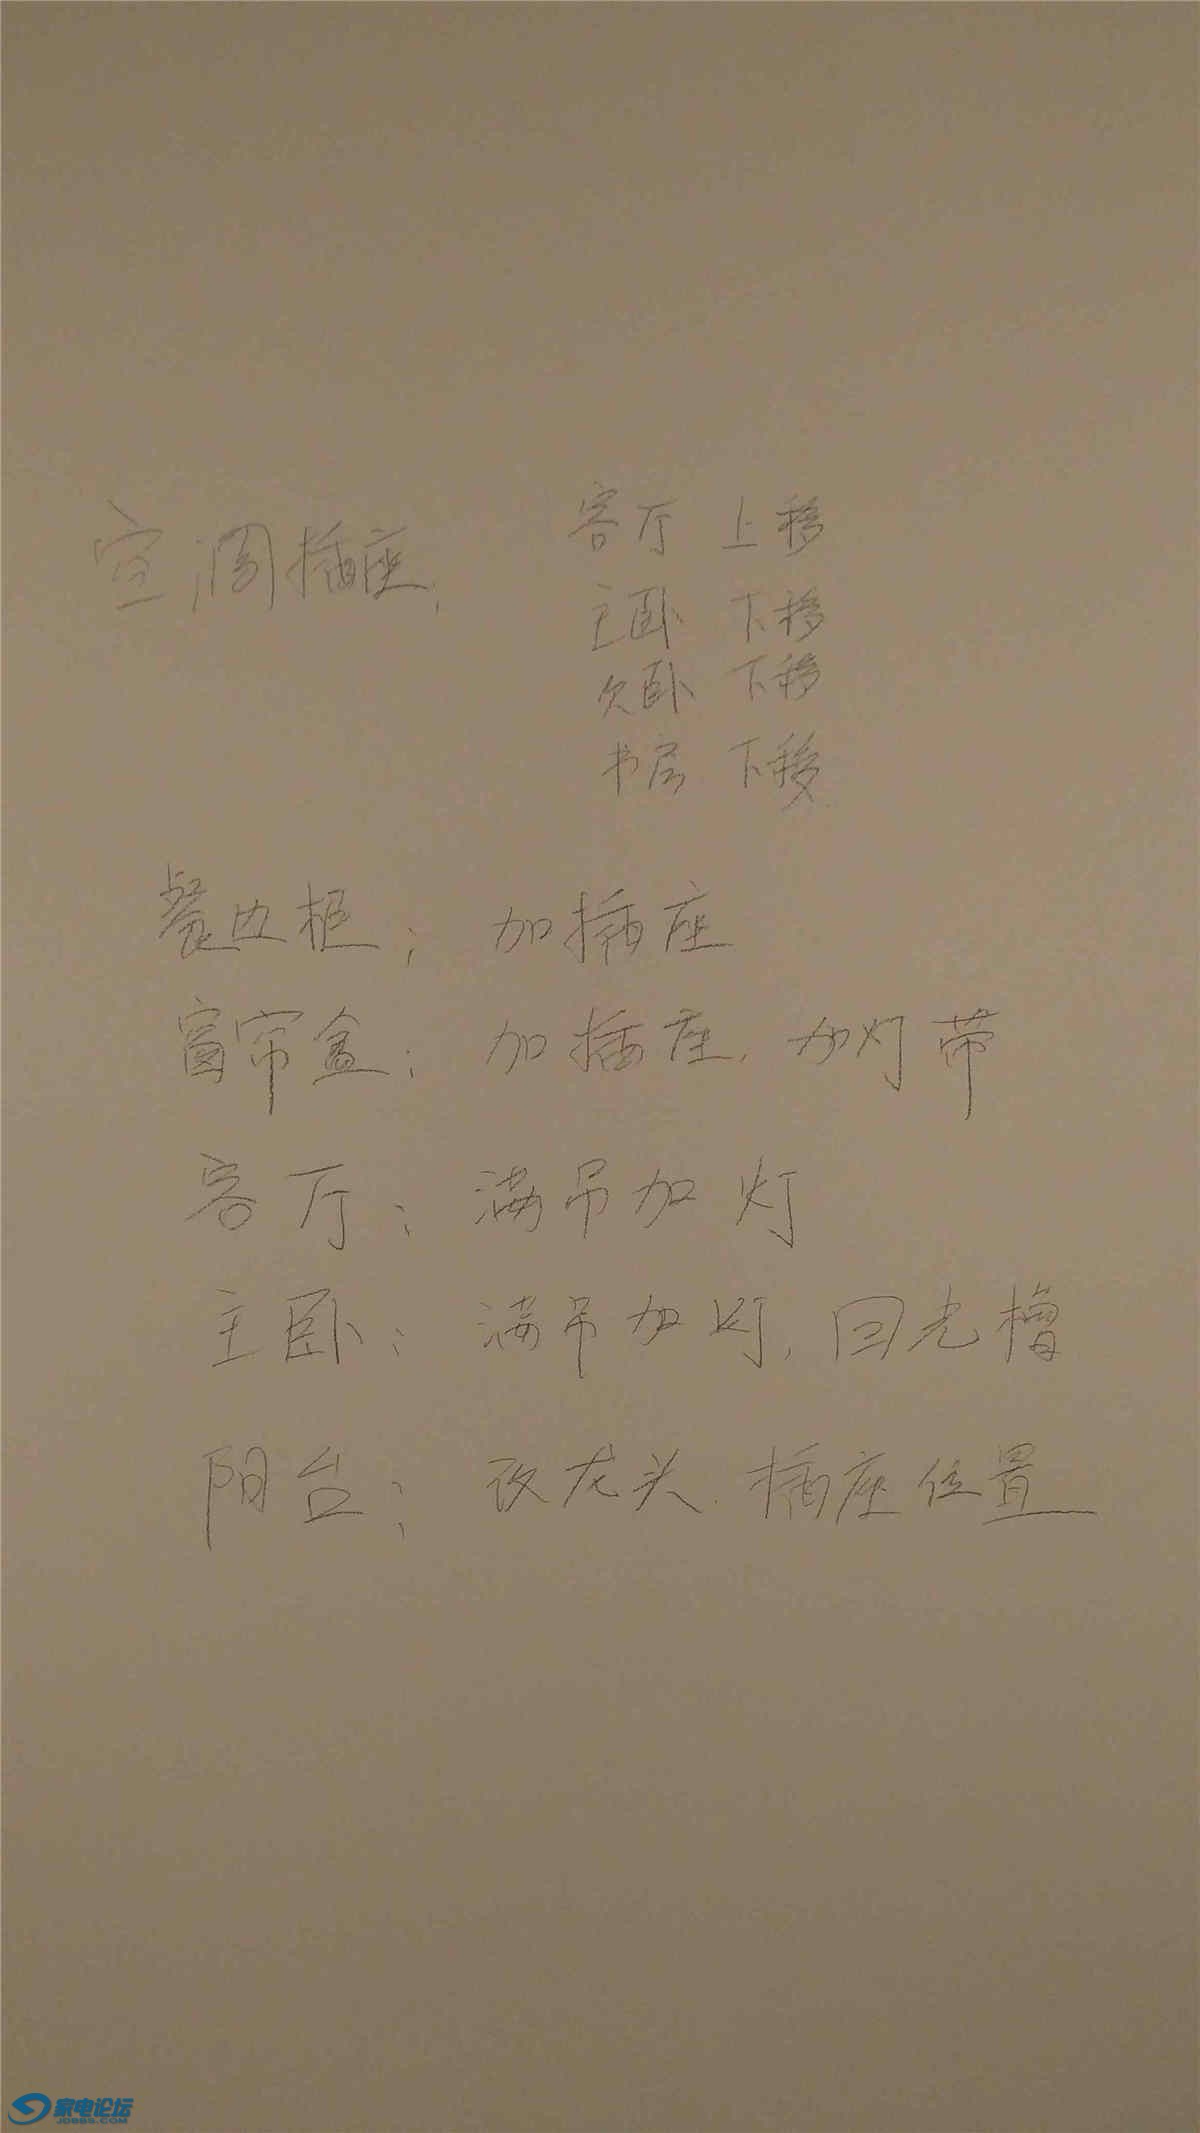 空调插座:
客厅 上移
主卧 下移
次卧 下移
书房 下移
餐边柜: 加插座
窗帘盒: 加插座, 加灯带
客厅: 满吊加灯
主卧: 满吊加灯, 回光槽
阳台: 改龙头, 插座位置
家电论坛
JDBBS.COM